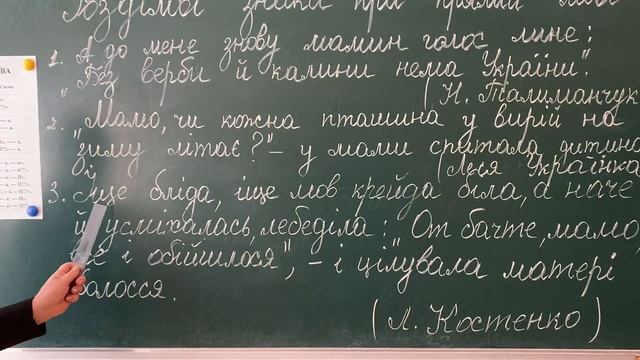 Розділові знаки при прямій мові
1. А до мене знову мамин голос лине:
„Без верби й калини нема України".
(Н. Талиманчук
2. „Мамо, чи кожна пташина у вирій на
зиму літає?" – у мами спитала дитина
(Леся Українка
3. іще бліда, іще мов крейда біла, а наче
й усміхалась, лебеділа: „От бачте, мамо,
і обійшлося", – і цілувала матері
волосся.
(Л. Костенко)